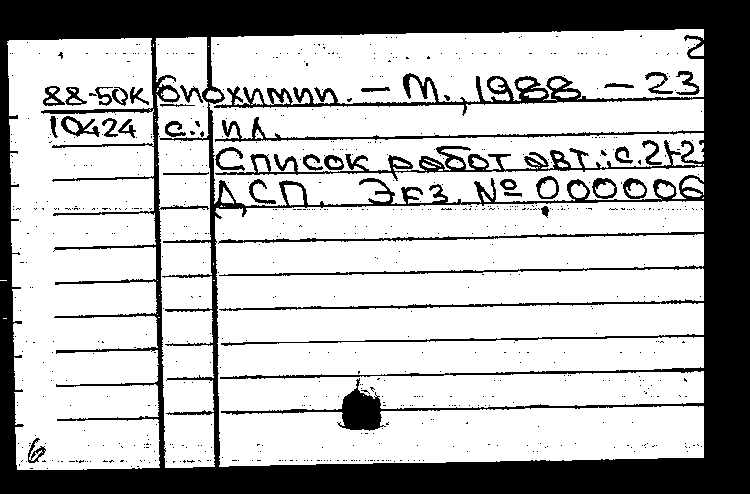 2
88-50К биохимии. — М., 1988. — 23
10424 с.: ил.
Список работ авт.: с.21-23
ДСП. Экз. № 000006
6